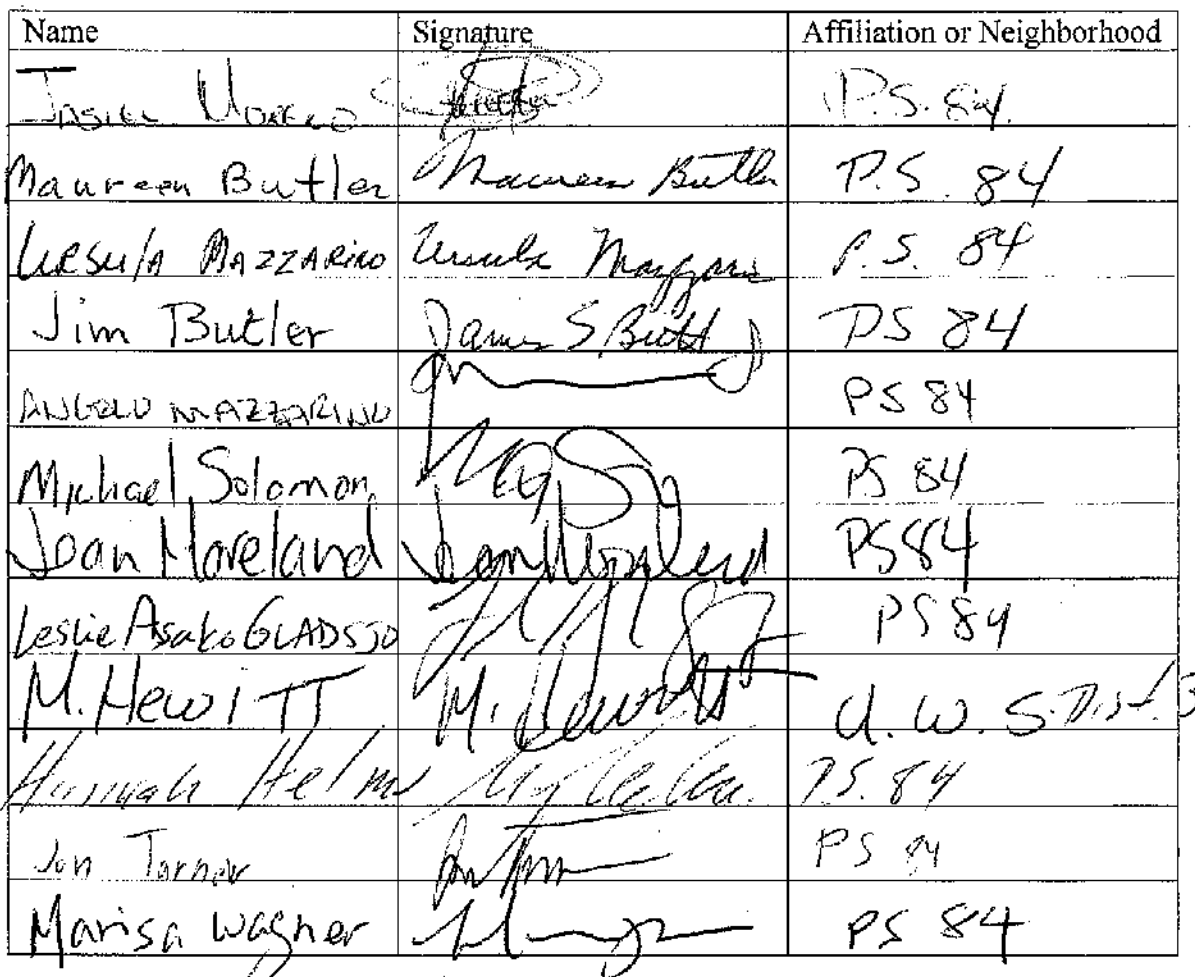 Name Signature Affiliation or Neighborhood
P.S. 84
Maureen Butler Maureen Butler P.S. 84
Ursula Mazzarino Ursula P.S. 84
Jim Butler James S. PS 84
ANGELO MAZZARINO PS 84
Michael Solomon PS 84
Joan Moreland Joan Moreland PS 84
Leslie Asako GLADSJO PS 84
M. Hewitt M. Hewitt U.W.S. Dist. 3
Hannah P.S. 84
Jon PS 84
Marisa Wagner PS 84